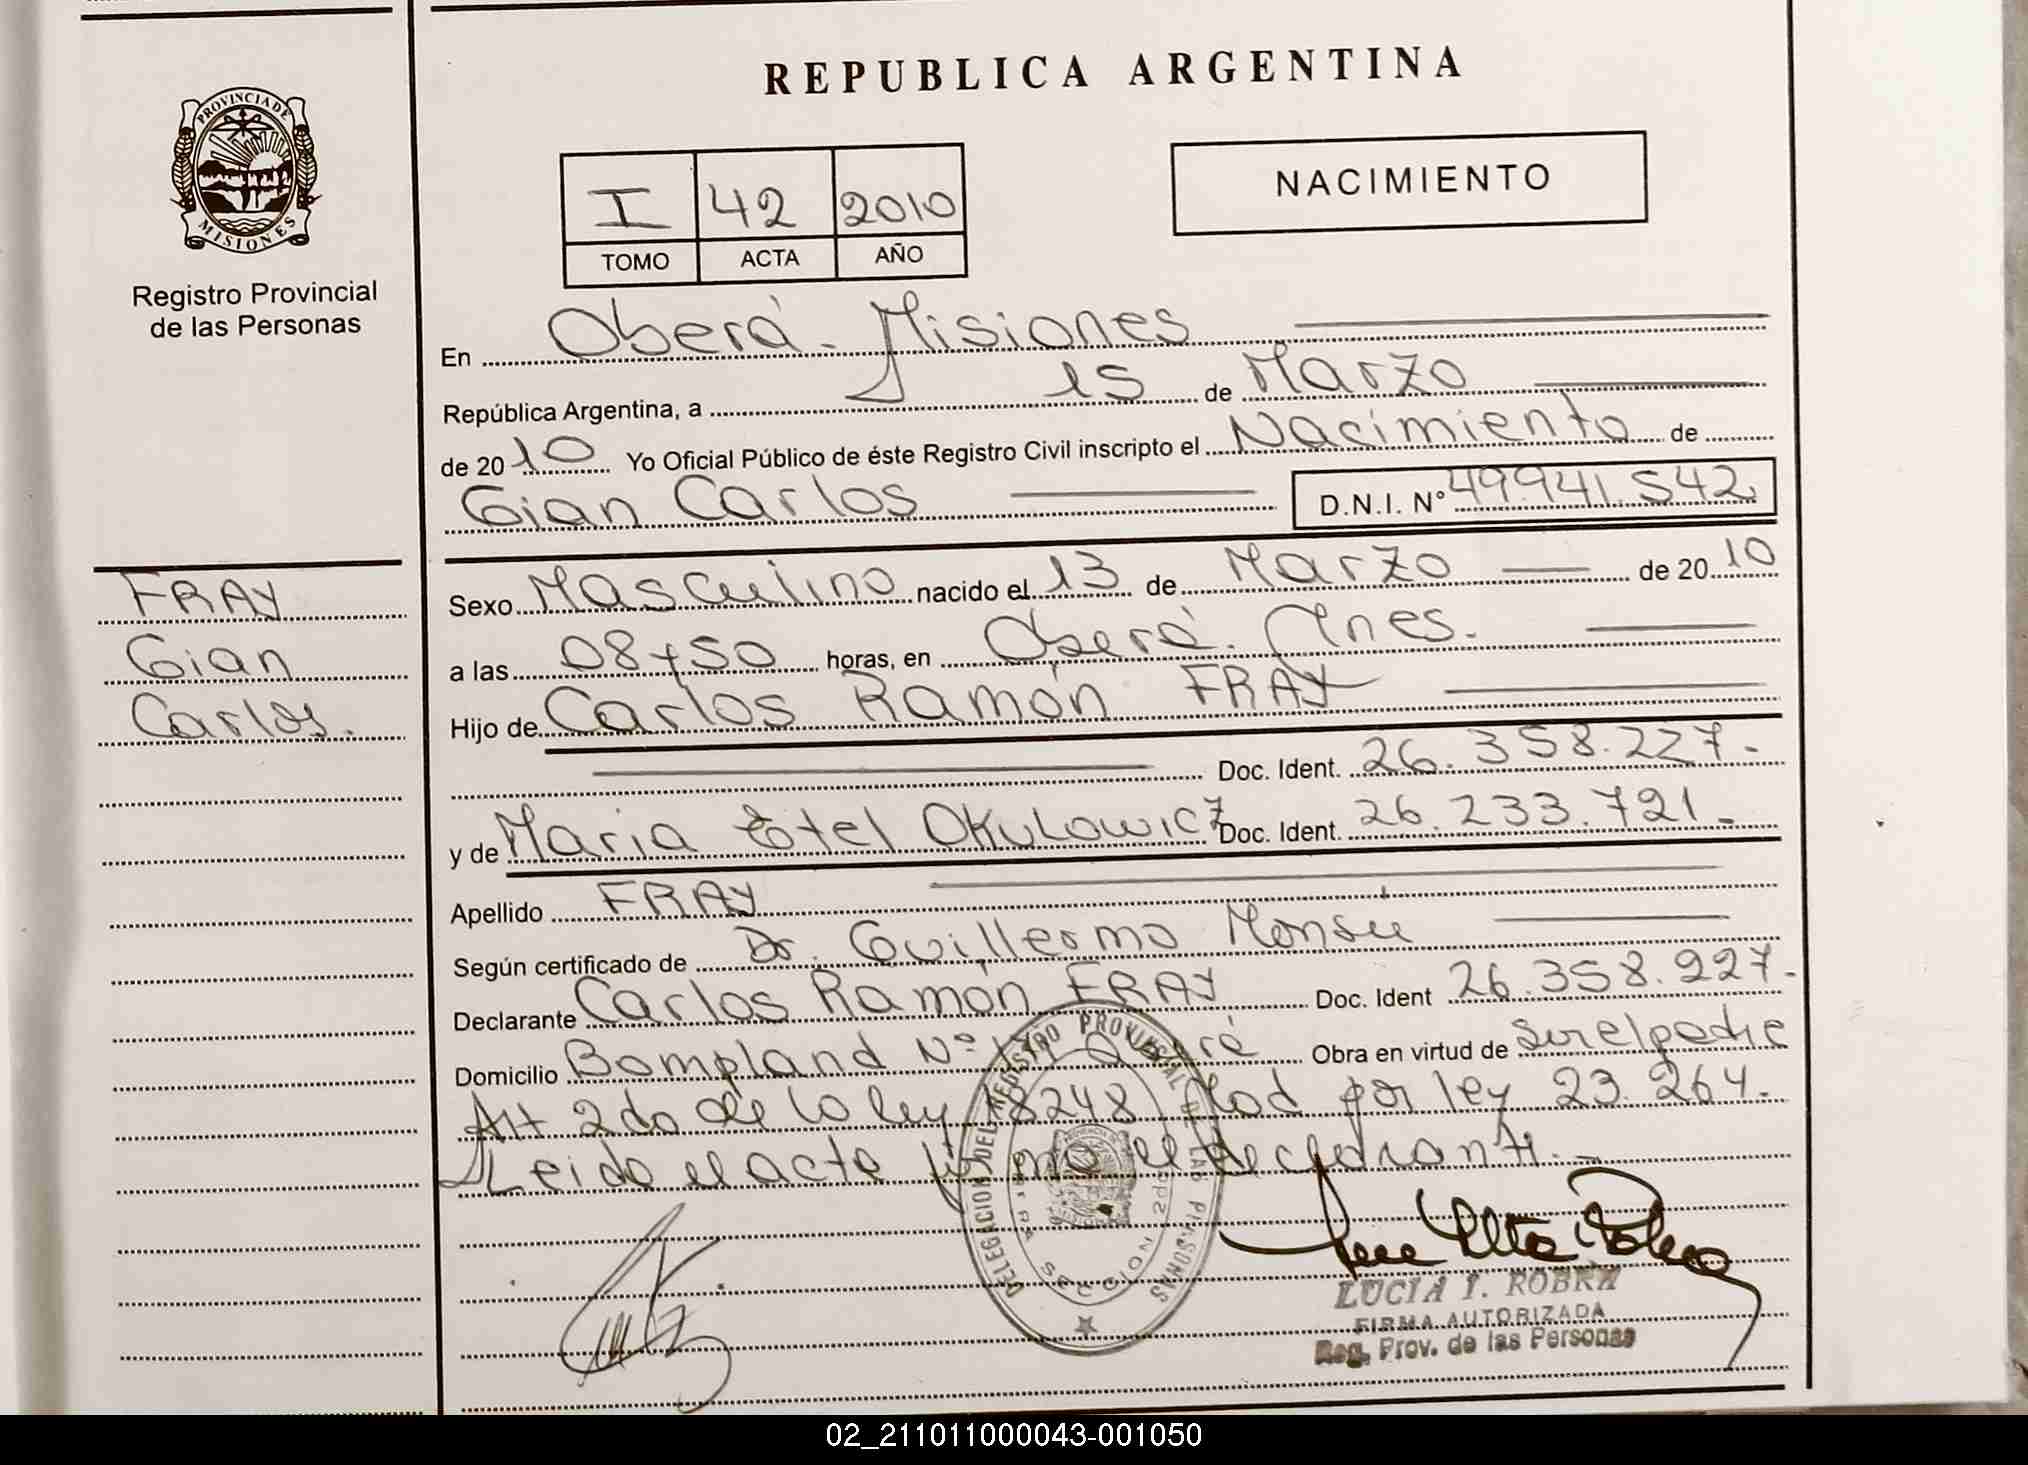 REPUBLICA ARGENTINA
PROVINCIA DE MISIONES
Registro Provincial
de las Personas
I 42 2010
TOMO ACTA AÑO
NACIMIENTO
En Oberá - Misiones
República Argentina, a 15 de Marzo
de 2010 Yo Oficial Público de éste Registro Civil inscripto el Nacimiento de
Gian Carlos D.N.I. N° 49.941.542
FRAY
Gian
Carlos.
Sexo Masculino nacido el 13 de Marzo de 2010
a las 08 y 50 horas, en Oberá. Mnes.
Hijo de Carlos Ramón FRAY
Doc. Ident. 26.358.227.-
y de Maria Estel OKULOWICZ Doc. Ident. 26.233.721.-
Apellido FRAY
Según certificado de Dr. Guillermo Monsu
Declarante Carlos Ramón FRAY Doc. Ident 26.358.227.-
Domicilio Bompland N° Oberá Obra en virtud de ser el padre
Art 2do de la ley 18248 Mod por ley 23.264.-
Leido el acta firma el declarante.-
DELEGACION DEL REGISTRO PROVINCIAL DE LAS PERSONAS
LUCIA I. ROBRA
FIRMA AUTORIZADA
Reg. Prov. de las Personas
02_211011000043-001050